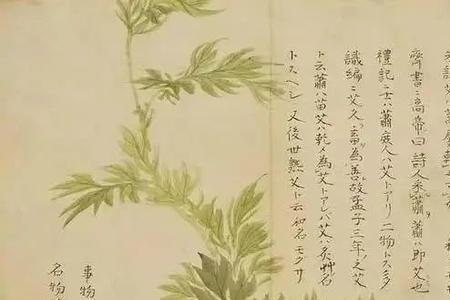 齊書ニ高帝曰詩人采蕭蕭ハ即艾也
禮記ニ士ハ蕭庶人ハ艾トアリ二物トス多
識編ニ艾久畜為善故孟子三年ノ之艾
ト云蕭ハ苗艾ハ乾〆為艾トアレバ艾ハ灸艸名
トスヘシ又後世熟艾ト云和名モグサ
事物
名物